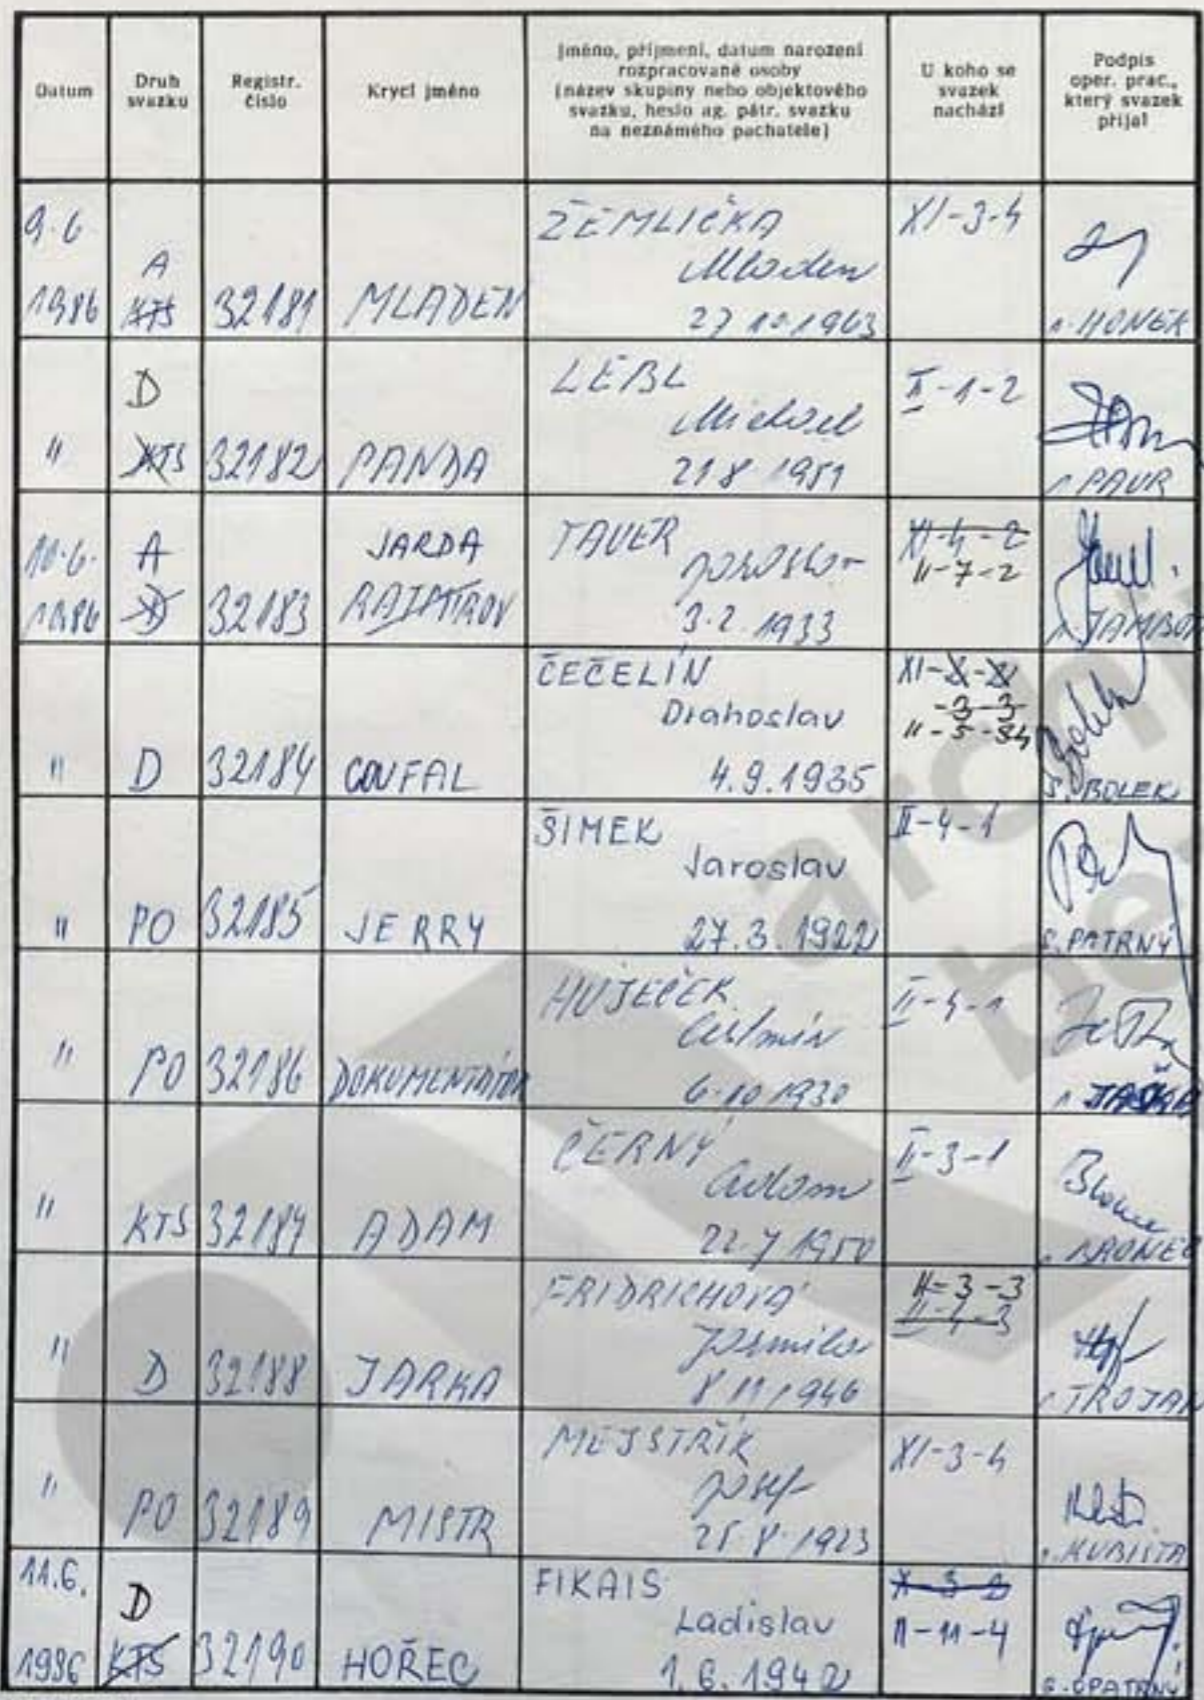 Datum
Druh
svazku
Registr.
číslo
Krycí jméno
Jméno, příjmení, datum narození
rozpracované osoby
(název skupiny nebo objektového
svazku, heslo ag. pátr. svazku
na neznámého pachatele)
U koho se
svazek
nachází
Podpis
oper. prac.,
který svazek
přijal
9.6.
1986
A
KTS
32181
MLADEN
ŽEMLIČKA
Mladen
27 10 1963
XI-3-4
HONEK
"
D
KTS
32182
PANDA
LÉBL
Michael
21 8 1951
II-1-2
PAUR
10.6.
1986
A
D
32183
JARDA
TAUER
Jaroslav
3.2.1933
XI-4-2
II-7-2
JAMBOR
"
D
32184
COUFAL
ČEČELÍN
Drahoslav
4.9.1935
XI-
-3-3
II-5-
S. BOLEK
"
PO
32185
JERRY
ŠIMEK
Jaroslav
27.3.1922
II-4-1
S. PATRNÝ
"
PO
32186
DOKUMENTÁTOR
HUJEČEK
6.10 1930
II-4-1
"
KTS
32187
ADAM
ČERNÝ
Adam
22.7 1950
II-3-1
"
D
32188
JARKA
FRIDRICHOVÁ
Jarmila
8 11 1946
II-3-3
II-4-3
TROJAN
"
PO
32189
MISTR
MEJSTŘÍK
Josef
25.8.1923
XI-3-4
KUBIŠTA
11.6.
1986
D
KTS
32190
HOŘEC
FIKAIS
Ladislav
1.6.1942
X-3-2
II-11-4
S. OPATRNÝ